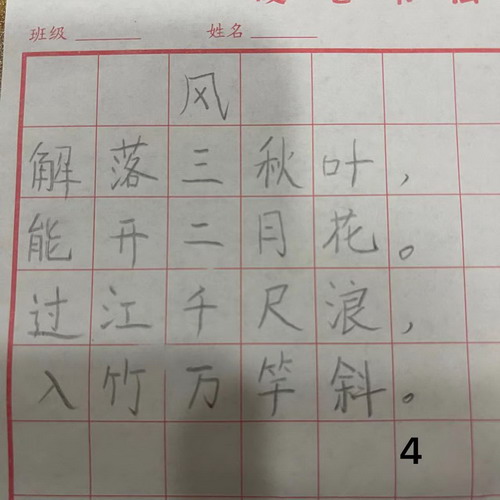 班级 姓名
风
解落三秋叶,
能开二月花。
过江千尺浪,
入竹万竿斜。
4